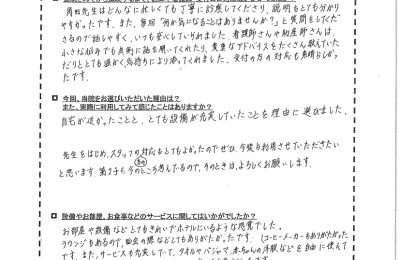 先生はどんなに忙しくても丁寧に診察してくださり、説明もとても分かり
やすかったです。また、毎回「何か気になることはありませんか?」と質問をしてくだ
さるので話しやすく、いつも安心していられました。看護師さんや助産師さんは、
小さな悩みでも真剣に話を聞いてくれたり、貴重なアドバイスをたくさん教えていた
だりととても温かく気持ちにより添ってくれました。受付の方の対応も素晴らしかっ
たです。
■ 今回、当院をお選びいただいた理由は?
また、実際に利用してみて感じたことはありますか?
自宅が近かったことと、とても設備が充実していたことを理由に選びました。
先生をはじめ、スタッフの対応もとてもよかったのでぜひ、今後も利用させていただきたい
と思います。第2子も今のところ考えているので、そのときは、よろしくお願いします。
■ 設備やお部屋、お食事などのサービスに関してはいかがでしたか?
お部屋や設備などとてもきれいでホテルにいるような感覚でした。
ラウンジもあるので、面会の際などとてもありがたかったです。(コーヒーメーカーもありがたかった
です。また、サービスも充実していて、タオルやパジャマ、赤ちゃんの洋服などを自由に使えて